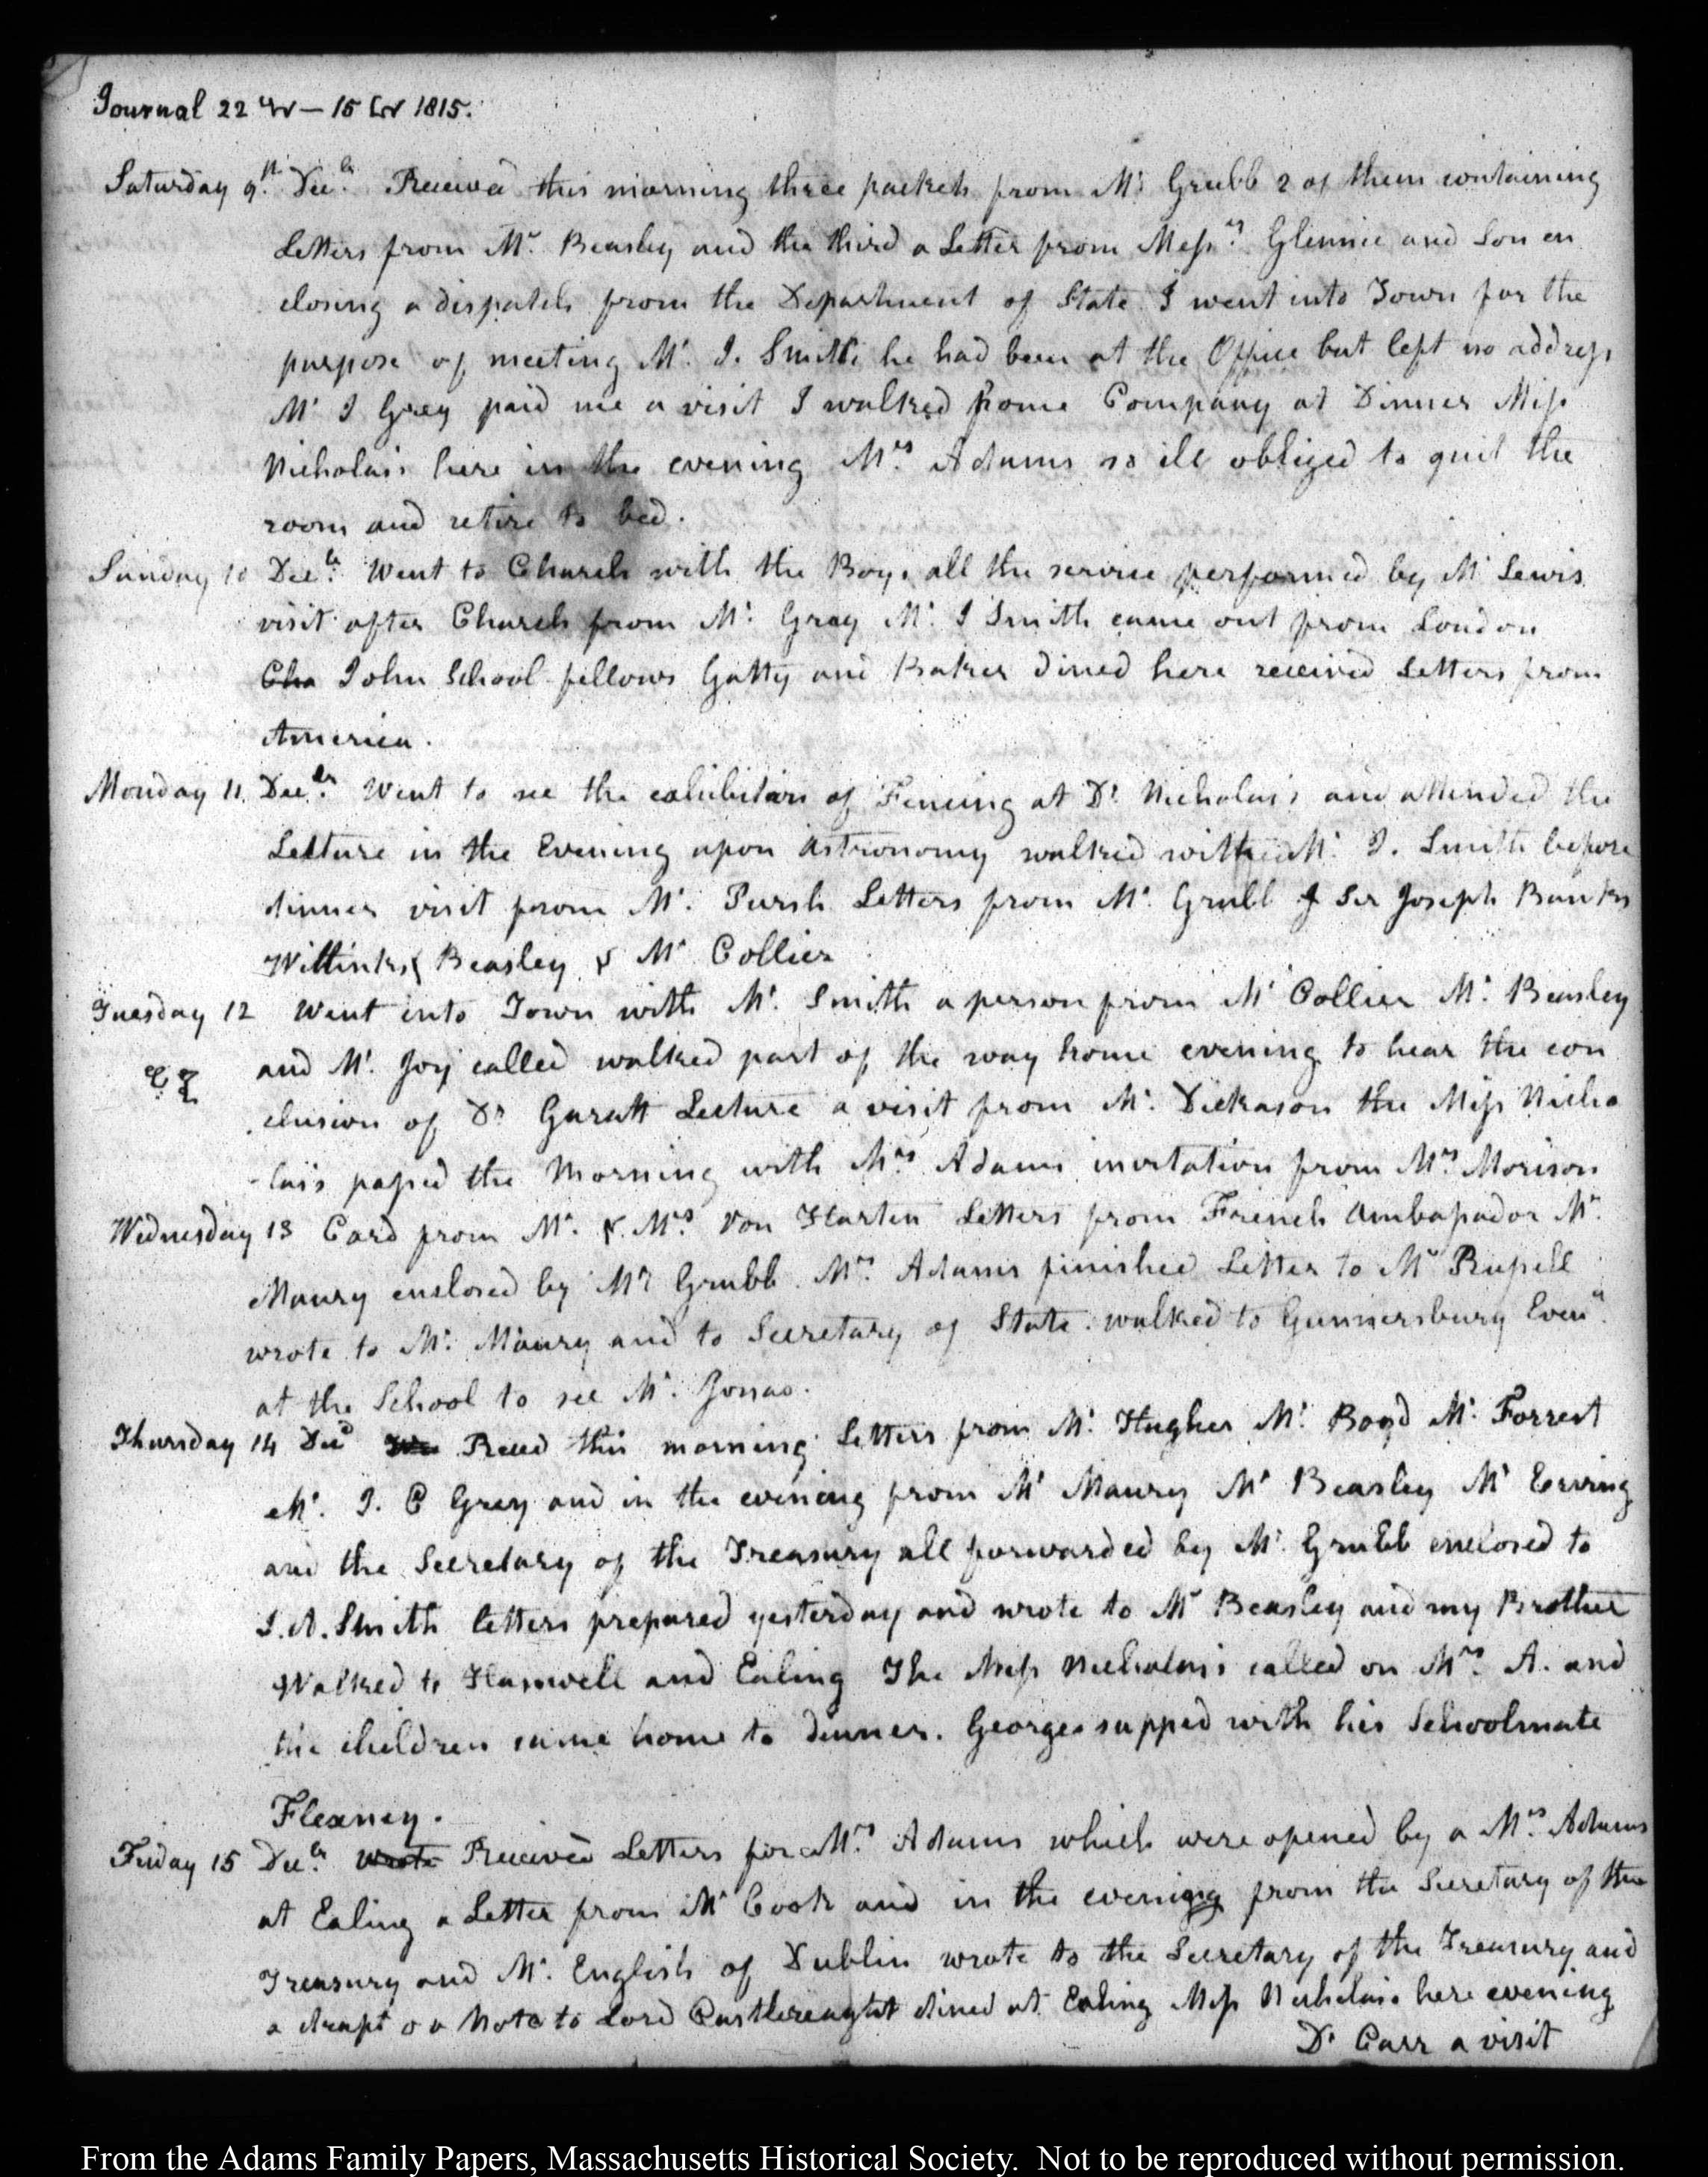 Journal 22 — 15 1815.
Saturday 9.th Decr. Received this morning three packets from Mr Grubb 2 of them containing
Letters from Mr. Beasley and the third a Letter from Messrs. Glennie and Son en
closing a dispatch from the Department of State I went into Town for the
purpose of meeting Mr. J. Smith he had been at the Office but left no address
Mr J Grey paid me a visit I walked home Company at Dinner Miss
Nicholas's here in the evening Mrs. Adams so ill obliged to quit the
room and retire to bed.
Sunday 10 Decr. Went to Church with the Boys all the service performed by Mr Lewis
visit after Church from Mr. Gray Mr. J Smith came out from London
Cha John School fellows Gatty and Baker dined here received Letters from
America.
Monday 11. Decr. Went to see the exhibition of Fencing at Dr. Nicholas's and attended the
Lecture in the Evening upon Astronomy walked with Mr. J. Smith before
dinner visit from Mr. Pursh Letters from Mr. Grubb & Sir Joseph Banks
Willinks & Beasley & Mr Collier
Tuesday 12 Went into Town with Mr. Smith a person from Mr Collier Mr. Beasley
and Mr. Joy called walked part of the way home evening to hear the con
clusion of Dr Garatt Lecture a visit from Mr. Dickason the Miss Nicho
-las's passed the Morning with Mrs. Adams invitation from Mrs Morison
Wednesday 13 Card from Mr. & Mrs Von Harten Letters from French Ambassador Mr.
Maury enclosed by Mr Grubb Mrs. Adams finished Letter to Mr Russell
wrote to Mr. Maury and to Secretary of State. walked to Gunnersbury Eveng.
at the School to see Mr. Jonas.
Thursday 14 Decr Recd this morning Letters from Mr. Hughes Mr. Boyd Mr. Forrest
Mr. J. C Grey and in the evening from Mr Maury Mr Beasley Mr Erving
and the Secretary of the Treasury all forwarded by Mr. Grubb enclosed to
J. A. Smith letters prepared yesterday and wrote to Mr Beasley and my Brother
Walked to Hanwell and Ealing The Miss Nicholas's called on Mrs. A. and
the children came home to dinner. George supped with his Schoolmate
Flexney.
Friday 15 Decr. Wrote Received Letters for Mrs Adams which were opened by a Mrs. Adams
at Ealing a Letter from Mr Cook and in the evening from the Secretary of the
Treasury and Mr. English of Dublin wrote to the Secretary of the Treasury and
a draft o a Note to Lord Castlereaght dined at Ealing Miss Nicholas's here evening
Dr Carr a visit
From the Adams Family Papers, Massachusetts Historical Society. Not to be reproduced without permission.